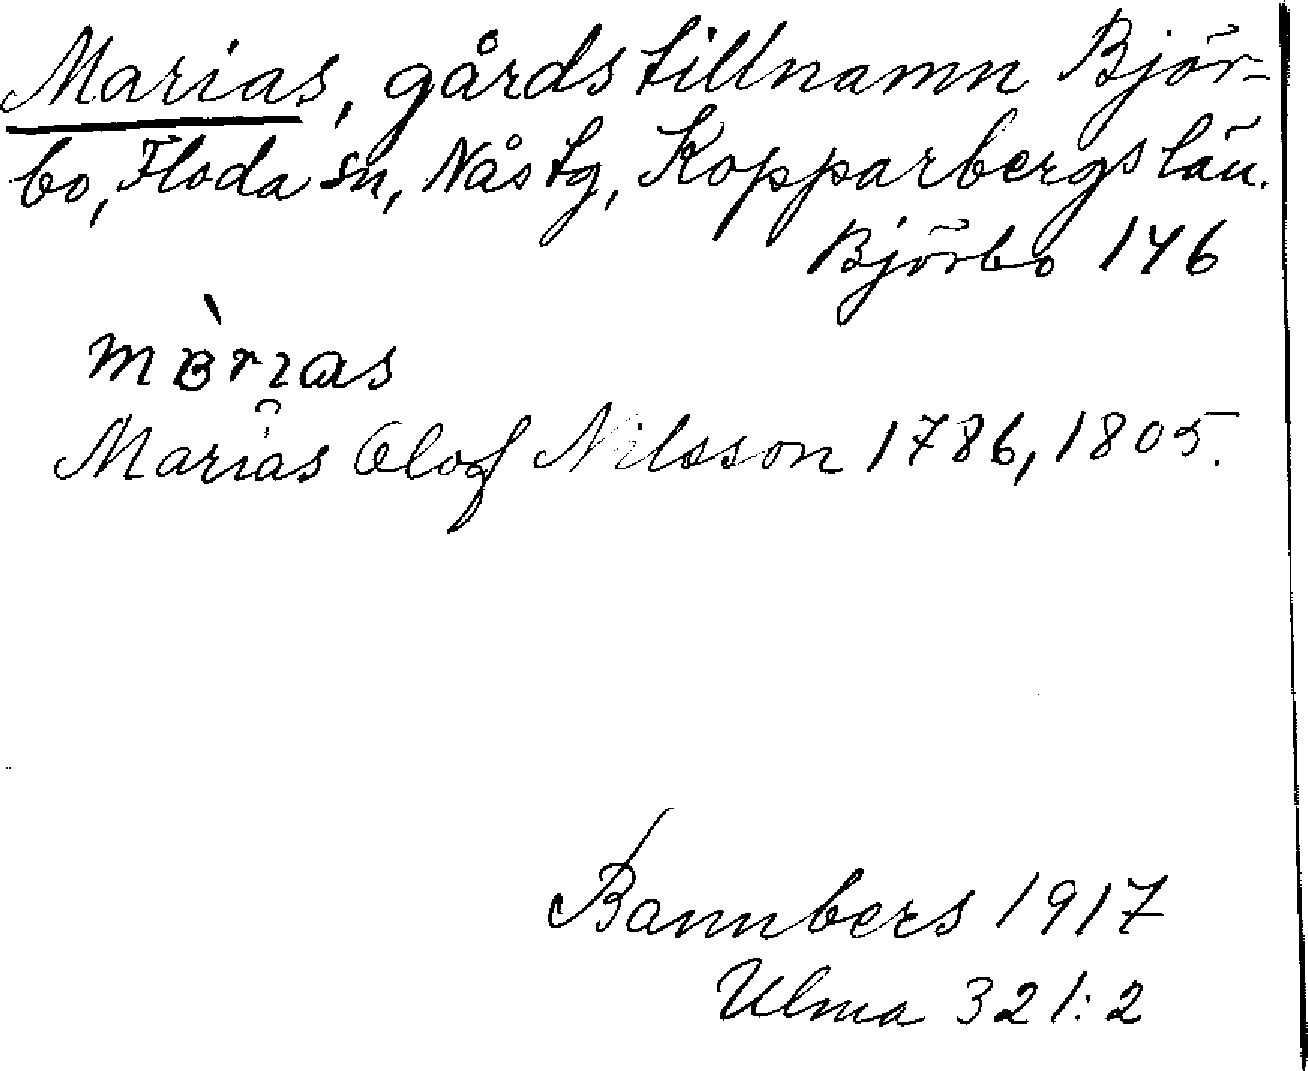 Marias, gårdstillnamn Björ-
bo, Floda sn, Nås tg, Kopparbergs län.
Björbo 146
Marias Olof Nilsson 1786, 1805.
Bannbers 1917
Ulma 321:2